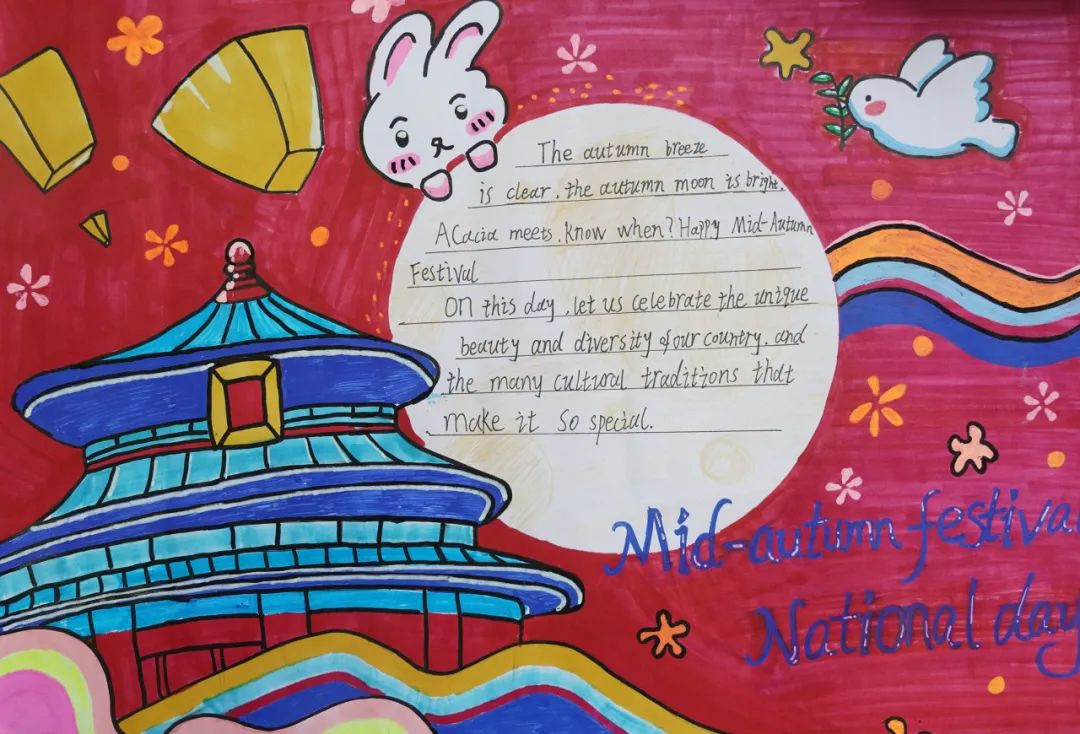 The autumn breeze
is clear, the autumn moon is bright.
Acacia meets, know when? Happy Mid-Autumn
Festival
On this day, let us celebrate the unique
beauty and diversity of our country, and
the many cultural traditions that
make it so special.
Mid-autumn festiva
National day